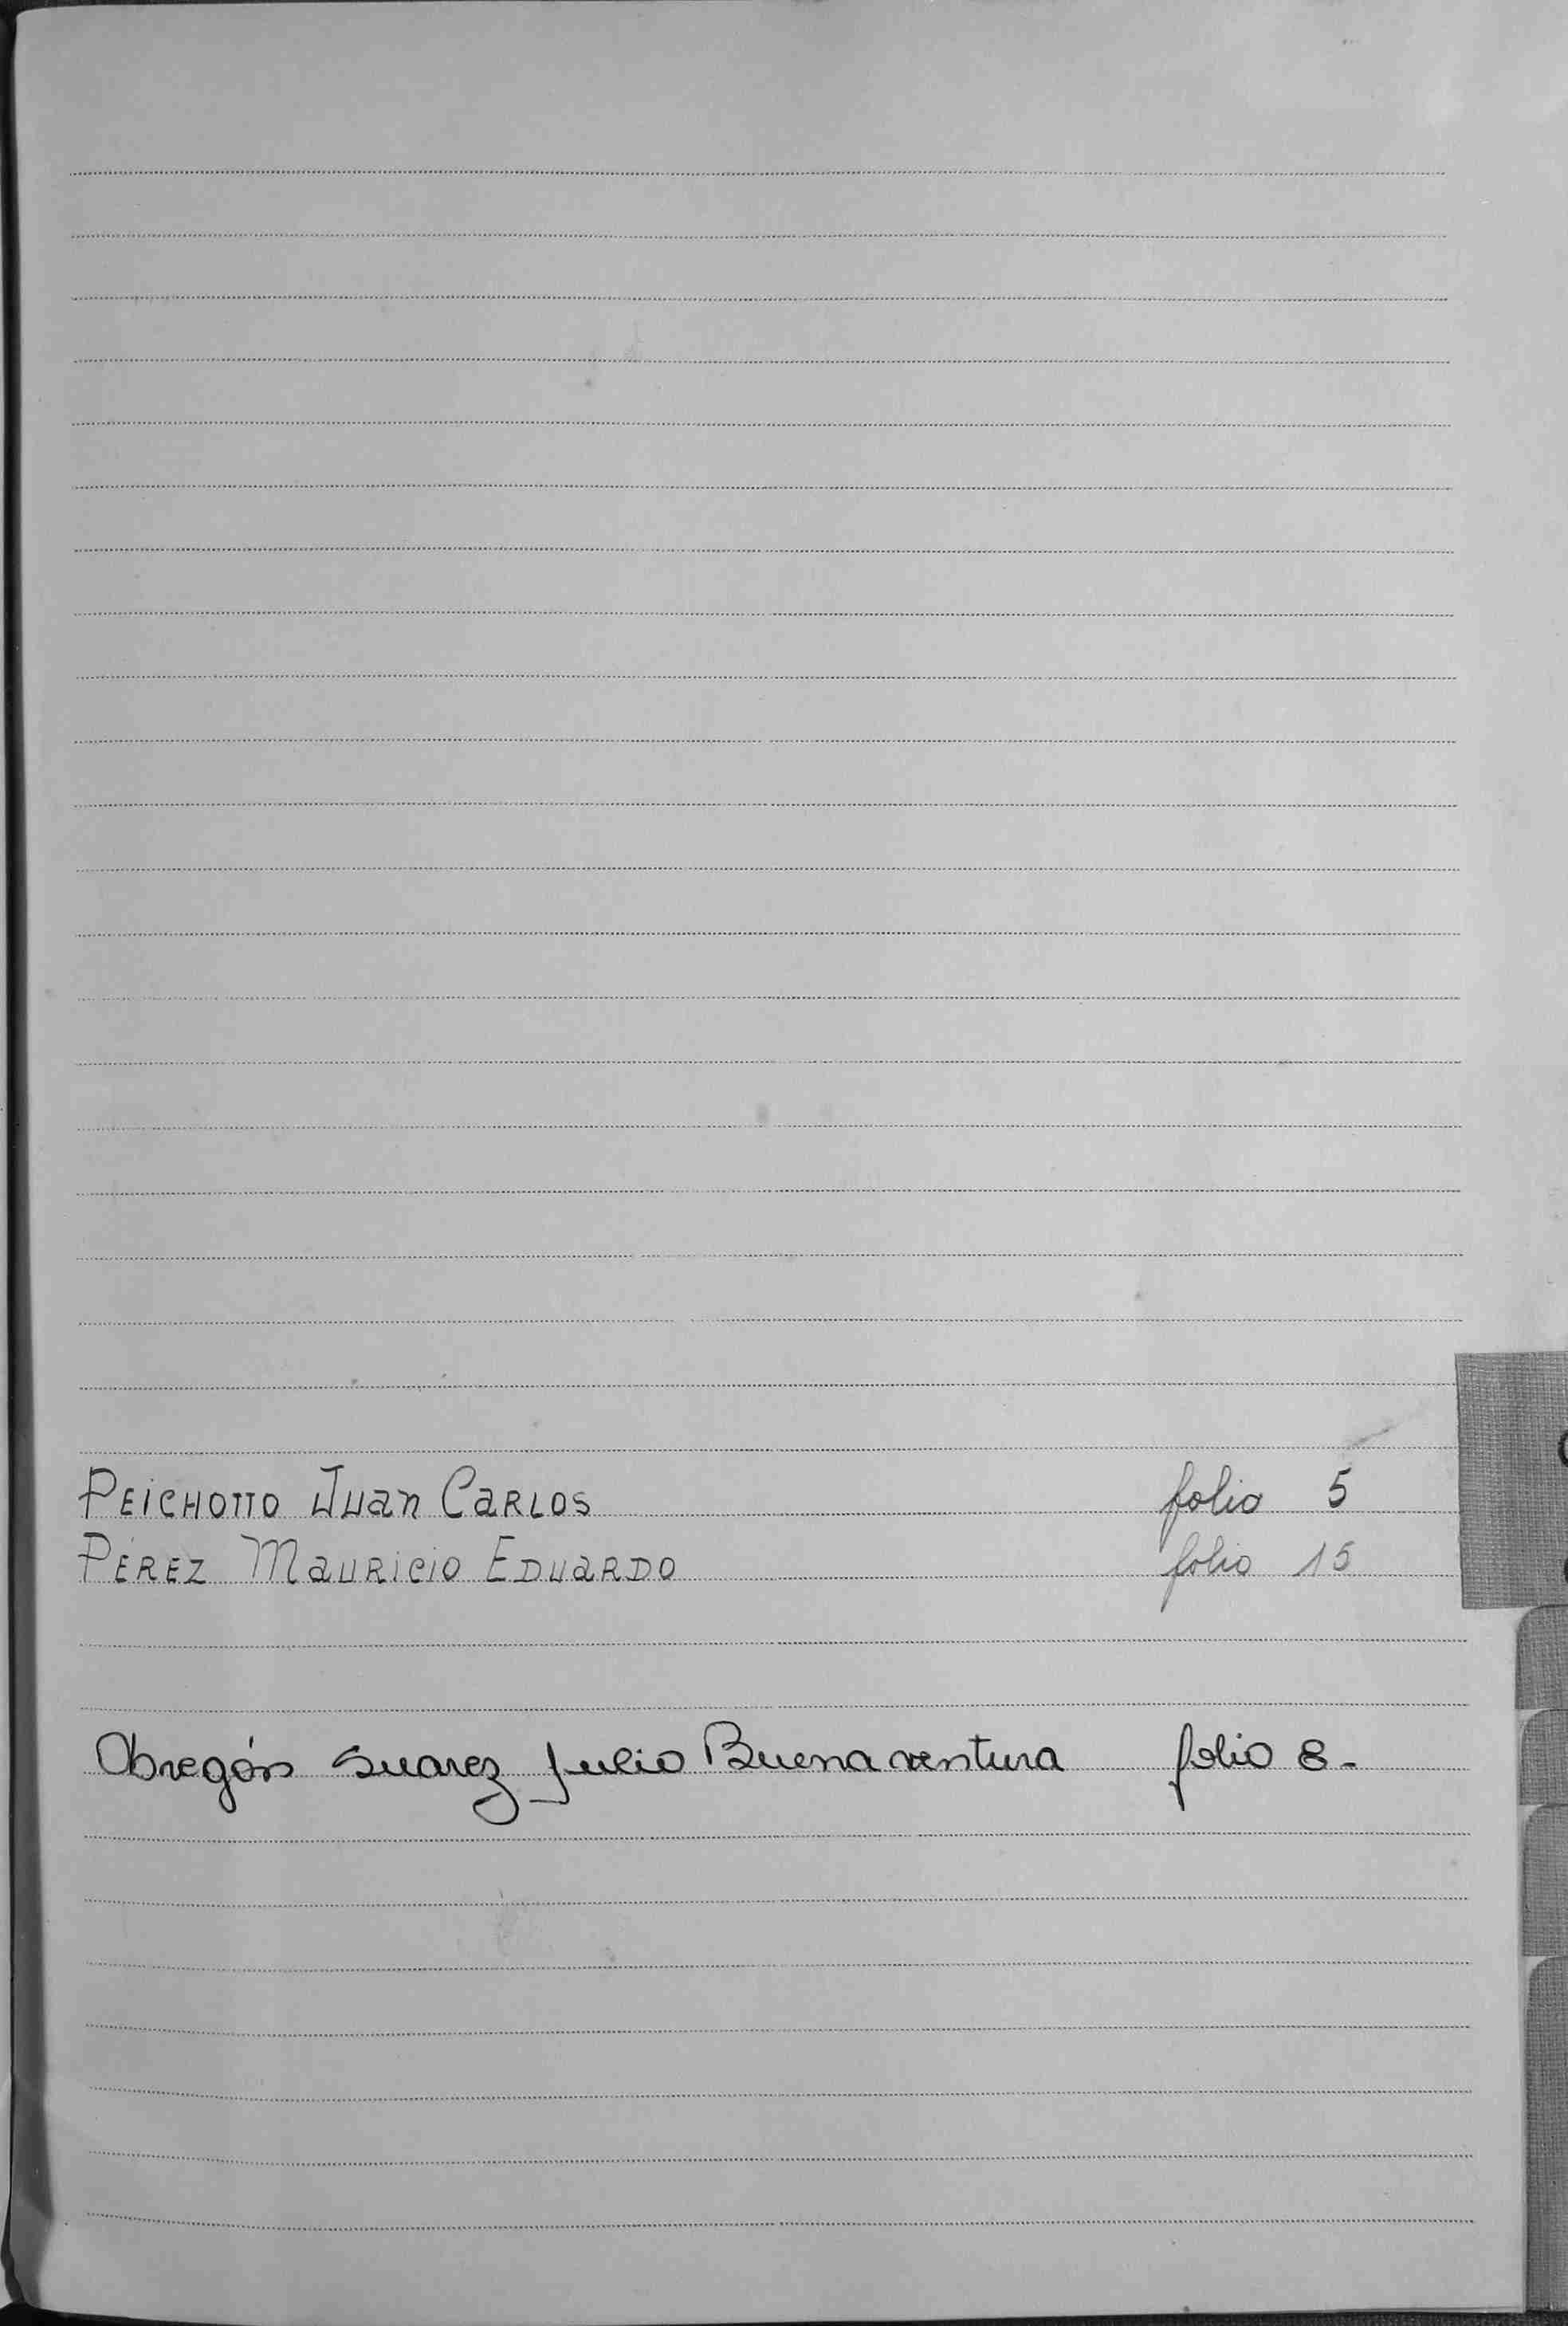 PEICHOTTO JUAN CARLOS folio 5
PÉREZ MAURICIO EDUARDO folio 15
Obregón Suarez Julio Buenaventura folio 8.-